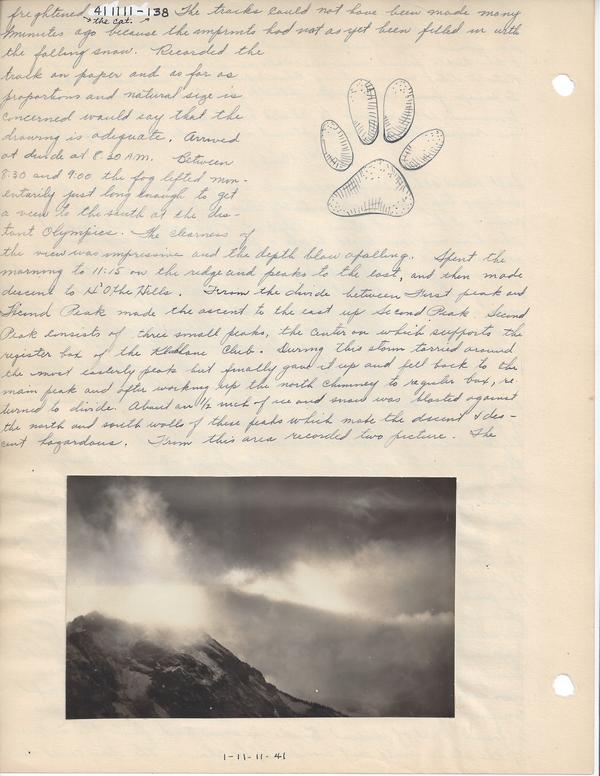 frightened 41 11 11 - 138 The tracks could not have been made many
the cat.
minutes ago because the imprints had not as yet been filled in with
the falling snow. Recorded the
track on paper and as far as
proportions and natural size is
concerned would say that the
drawing is adequate. Arrived
at divide at 8:20 A.M. Between
8:30 and 9:00 the fog lifted mom-
entarily just long enough to get
a view to the south at the dis-
tant Olympics. The clearness of
the view was impressive and the depth blow apalling. Spent the
morning to 11:15 on the ridge and peaks to the east, and then made
descent to H'O the Hills. From the divide between First peak and
Second Peak made the ascent to the east up Second Peak. Second
Peak consists of three small peaks, the center on which supports the
register box of the Klahhane Club. During this storm tarried around
the most easterly peak but finally gave it up and fell back to the
main peak and after working up the north chimney to register box, re-
turned to divide. About an 1/2 inch of ice and snow was blasted against
the north and south walls of these peaks which made the ascent & des-
cent hazardous. From this area recorded two picture. The
1-11-11-41